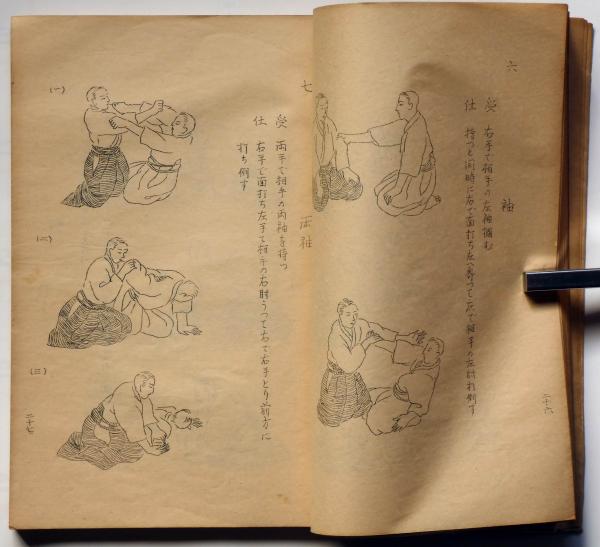 六
袖
受 右手で相手の左袖摑む
仕 持つと同時に右で面打ち左へ寄って左で相手の左肘打倒す
二十六
七
両袖
受 両手で相手の両袖を持つ
仕 右手で面打ち左手で相手の右肘うって右で右手とり前方に
打ち倒す
(一)
(二)
(三)
二十七